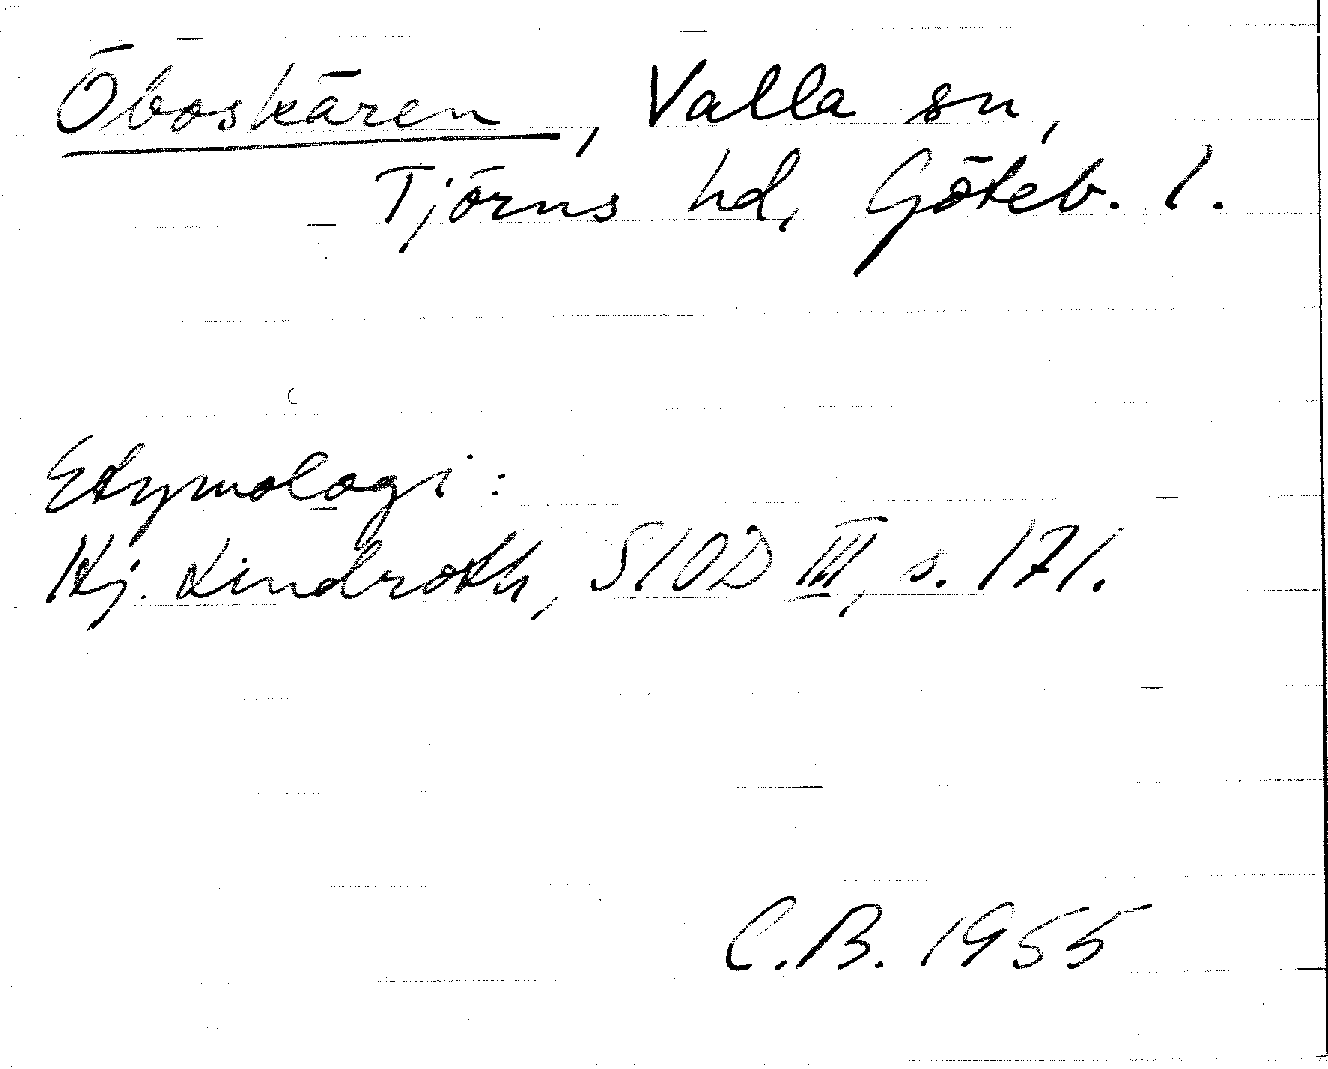 Öboskären, Valla sn,
Tjörns hd, Göteb. l.
Etymologi:
Hj. Lindroth, SIOD III, s. 171.
C.B. 1955